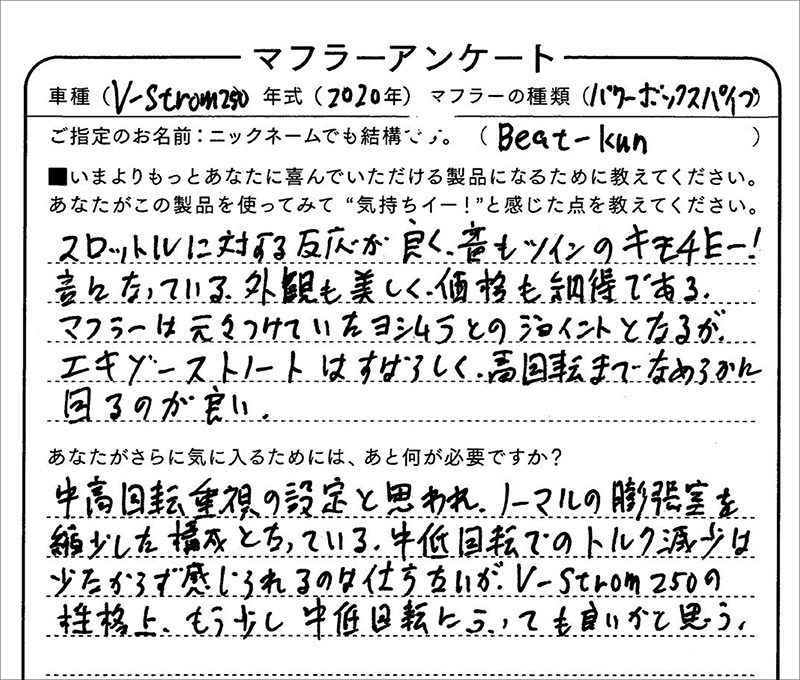 マフラーアンケート
車種（V-Strom250 年式（2020年）マフラーの種類（パワーボックスパイプ）
ご指定のお名前：ニックネームでも結構です。（Beat-kun）
■いまよりもっとあなたに喜んでいただける製品になるために教えてください。
あなたがこの製品を使ってみて“気持ちイー！”と感じた点を教えてください。
スロットルに対する反応が良く、音もツインのキモチE-!
音になっている。外観も美しく、価格も納得である。
マフラーは元々つけていたヨシムラとのジョイントとなるが、
エキゾーストノートはすばらしく、高回転までなめらかに
回るのが良い。
あなたがさらに気に入るためには、あと何が必要ですか？
中高回転重視の設定と思われ、ノーマルの膨張室を
縮少した構成となっている。中低回転でのトルク減少は
少なからず感じられるのは仕方ないが、V-Strom250の
性格上、もう少し中低回転にふっても良いかと思う。